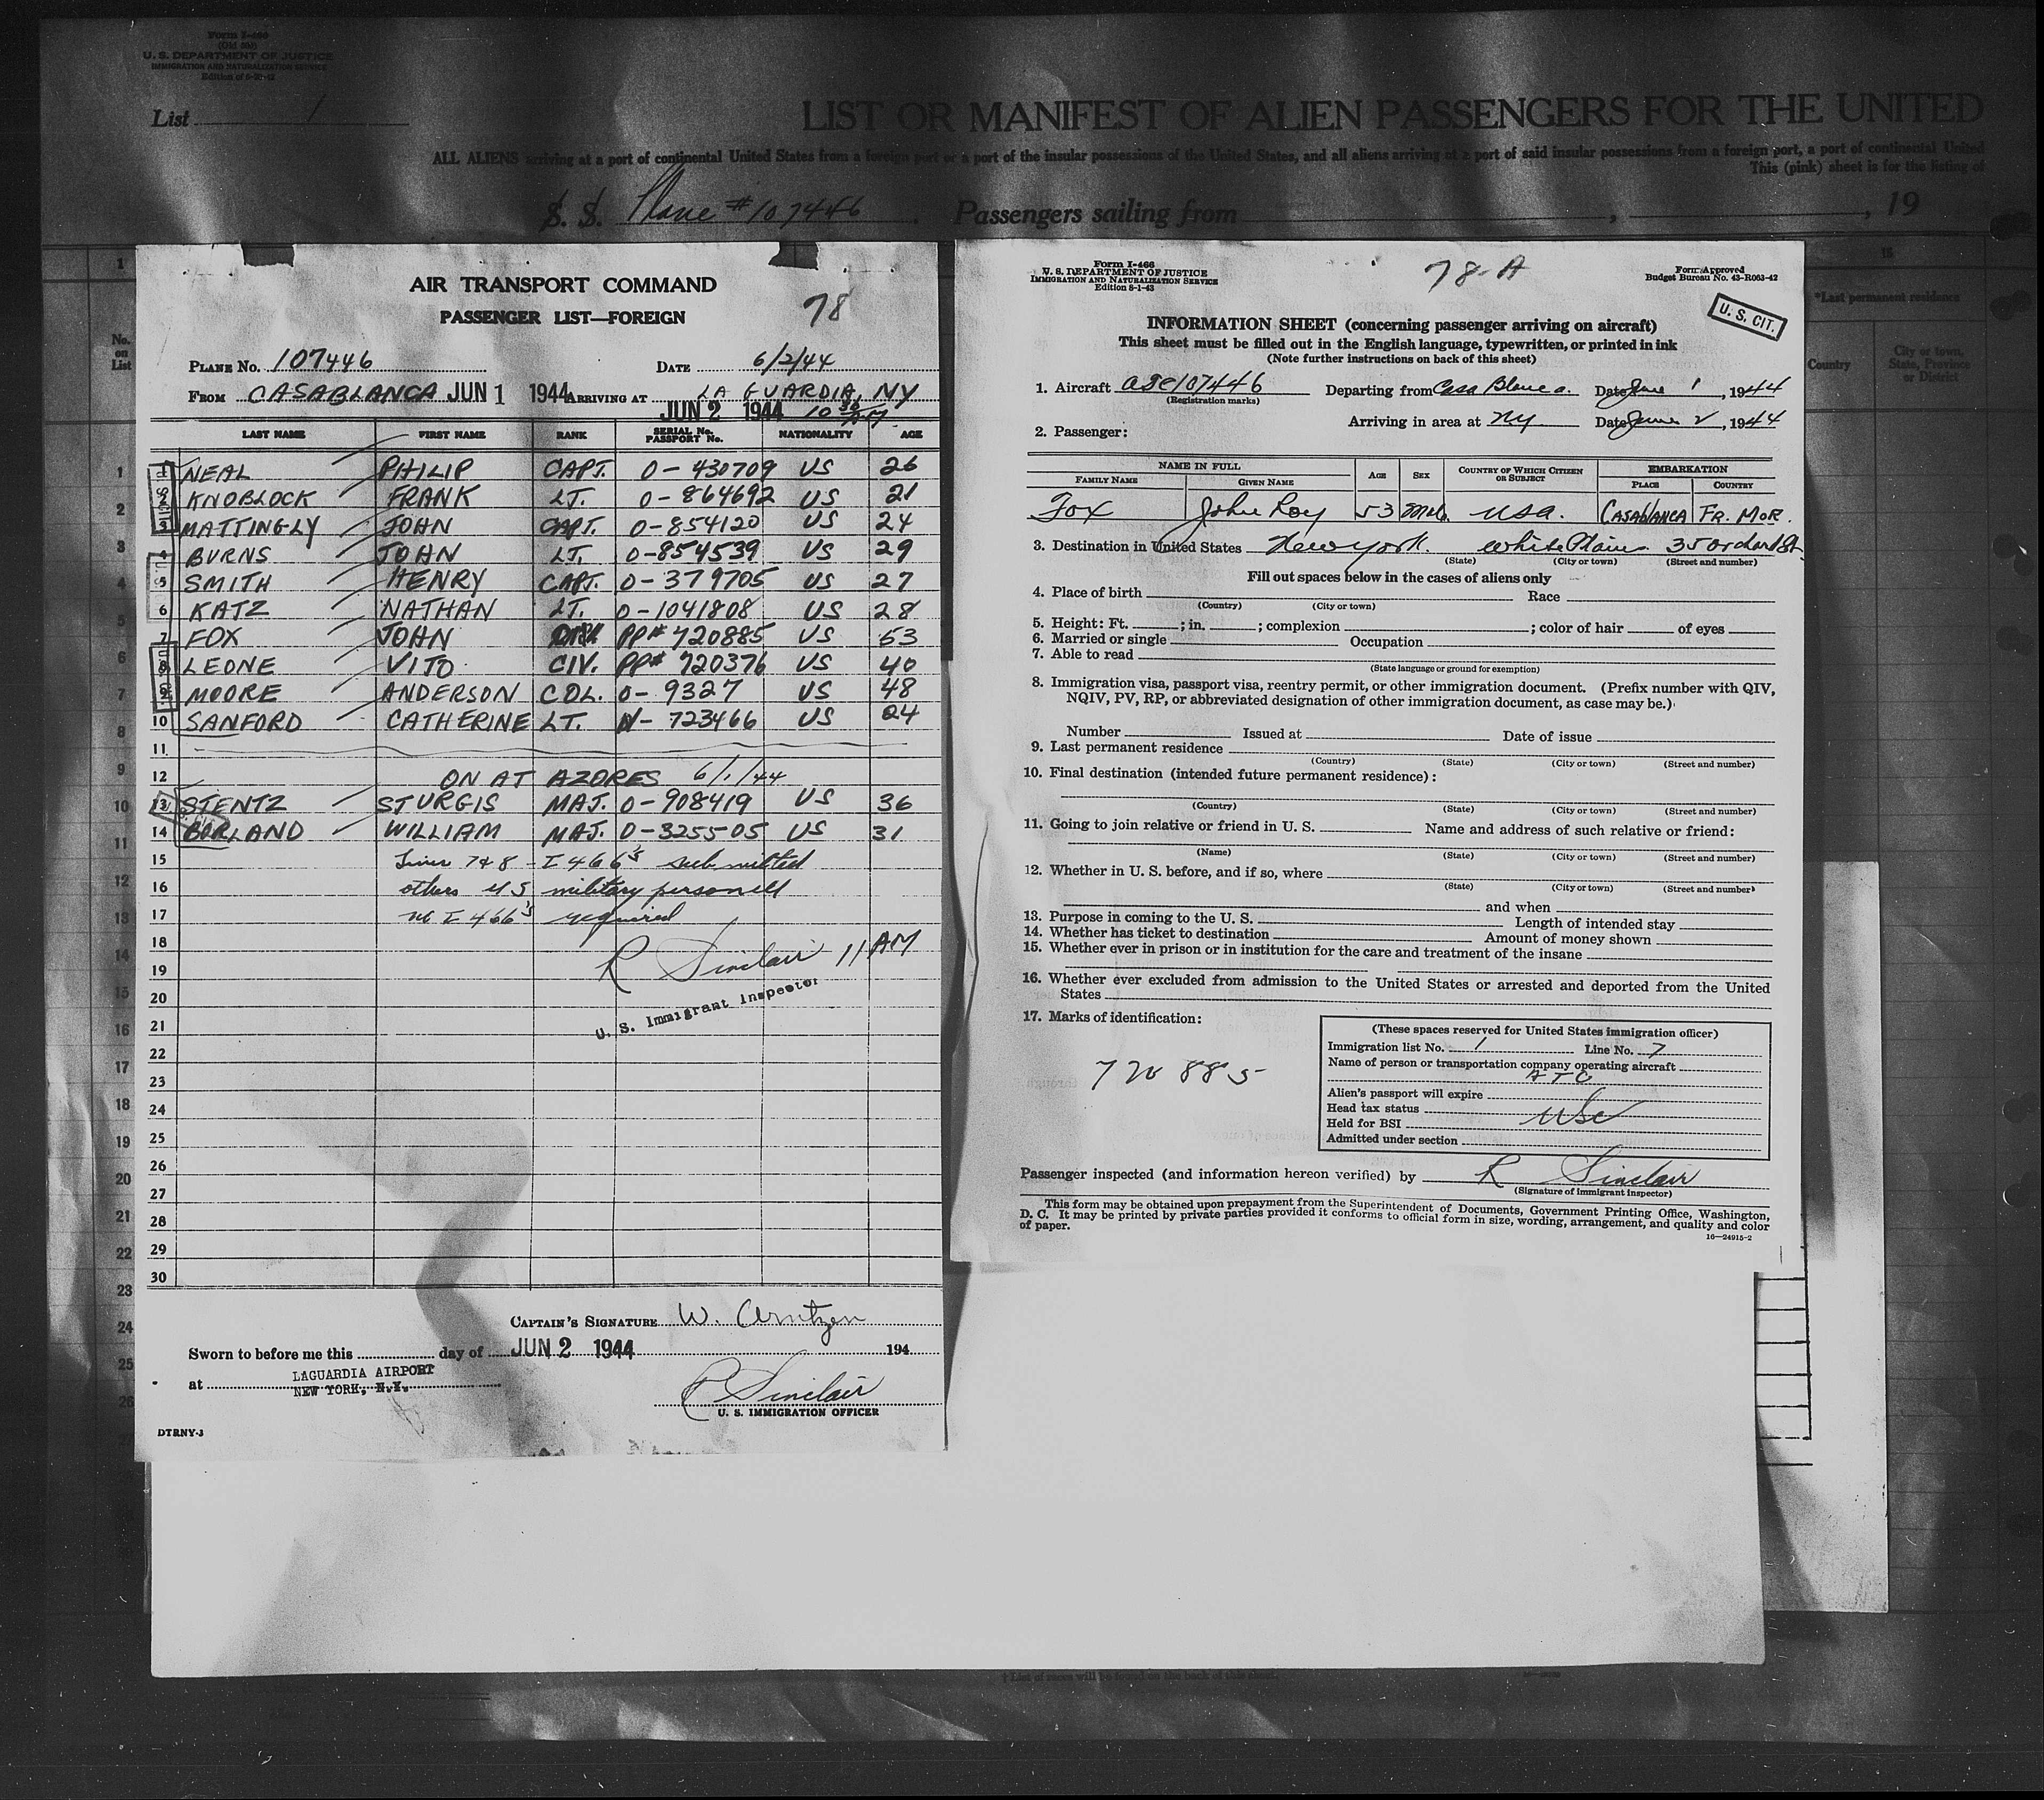 Form I-466
(Old 500)
U. S. DEPARTMENT OF JUSTICE
IMMIGRATION AND NATURALIZATION SERVICE
List 1
LIST OR MANIFEST OF ALIEN PASSENGERS FOR THE UNITED
ALL ALIENS arriving at a port of continental United States from a foreign port or a port of the insular possessions of the United States, and all aliens arriving at a port of said insular possessions from a foreign port, a port of continental United
This (pink) sheet is for the listing of
S. S. Plane # 107446 Passengers sailing from , , 19
AIR TRANSPORT COMMAND
PASSENGER LIST—FOREIGN
78
PLANE NO. 107446 DATE 6/2/44
FROM CASABLANCA JUN 1 1944 ARRIVING AT LA GUARDIA, NY
JUN 2 1944 10 30 AM
LAST NAME FIRST NAME RANK SERIAL No. PASSPORT No. NATIONALITY AGE
1 NEAL PHILIP CAPT. O-430709 US 26
2 KNOBLOCK FRANK LT. O-864692 US 21
3 MATTINGLY JOHN CAPT. O-854120 US 24
4 BURNS JOHN LT. O-854539 US 29
5 SMITH HENRY CAPT. O-379705 US 27
6 KATZ NATHAN LT. O-1041808 US 28
7 FOX JOHN PP# 720885 US 53
8 LEONE VITO CIV. PP# 720376 US 40
9 MOORE ANDERSON COL. O-9327 US 48
10 SANFORD CATHERINE LT. N-723466 US 24
11
12 ON AT AZORES 6/1/44
13 STENTZ STURGIS MAJ. O-908419 US 36
14 BORLAND WILLIAM MAJ. O-325505 US 31
15 Lines 7 & 8 - I 466's submitted
16 others U S military personell
17 no I 466's required
18 R Sinclair 11 AM
19
20 U. S. Immigrant Inspector
21
22
23
24
25
26
27
28
29
30
CAPTAIN'S SIGNATURE W. Arntzen
Sworn to before me this day of JUN 2 1944 194
at LAGUARDIA AIRPORT
NEW YORK, N.Y.
R Sinclair
U. S. IMMIGRATION OFFICER
DTRNY-3
Form I-466
U. S. DEPARTMENT OF JUSTICE
IMMIGRATION AND NATURALIZATION SERVICE
Edition 8-1-43
78-A
Form Approved
Budget Bureau No. 43-R063-42
U. S. CIT.
INFORMATION SHEET (concerning passenger arriving on aircraft)
This sheet must be filled out in the English language, typewritten, or printed in ink
(Note further instructions on back of this sheet)
1. Aircraft ATC 107446 Departing from Casa Blanca Date June 1, 1944
(Registration marks)
Arriving in area at NY Date June 2, 1944
2. Passenger:
NAME IN FULL AGE SEX COUNTRY OF WHICH CITIZEN OR SUBJECT EMBARKATION
FAMILY NAME GIVEN NAME PLACE COUNTRY
Fox John Roy 53 Male USA. CASABLANCA FR. MOR.
3. Destination in United States New York. White Plains 35 Orchard St.
(State) (City or town) (Street and number)
Fill out spaces below in the cases of aliens only
4. Place of birth Race
(Country) (City or town)
5. Height: Ft. ; in. ; complexion ; color of hair of eyes
6. Married or single Occupation
7. Able to read
(State language or ground for exemption)
8. Immigration visa, passport visa, reentry permit, or other immigration document. (Prefix number with QIV,
NQIV, PV, RP, or abbreviated designation of other immigration document, as case may be.)
Number Issued at Date of issue
9. Last permanent residence
(Country) (State) (City or town) (Street and number)
10. Final destination (intended future permanent residence):
(Country) (State) (City or town) (Street and number)
11. Going to join relative or friend in U. S. Name and address of such relative or friend:
(Name) (State) (City or town) (Street and number)
12. Whether in U. S. before, and if so, where
(State) (City or town) (Street and number)
and when
13. Purpose in coming to the U. S. Length of intended stay
14. Whether has ticket to destination Amount of money shown
15. Whether ever in prison or in institution for the care and treatment of the insane
16. Whether ever excluded from admission to the United States or arrested and deported from the United
States
17. Marks of identification:
720885
(These spaces reserved for United States immigration officer)
Immigration list No. 1 Line No. 7
Name of person or transportation company operating aircraft
ATC
Alien's passport will expire
Head tax status USC
Held for BSI
Admitted under section
Passenger inspected (and information hereon verified) by R Sinclair
(Signature of immigrant inspector)
This form may be obtained upon prepayment from the Superintendent of Documents, Government Printing Office, Washington,
D. C. It may be printed by private parties provided it conforms to official form in size, wording, arrangement, and quality and color
of paper.
16—24915-2